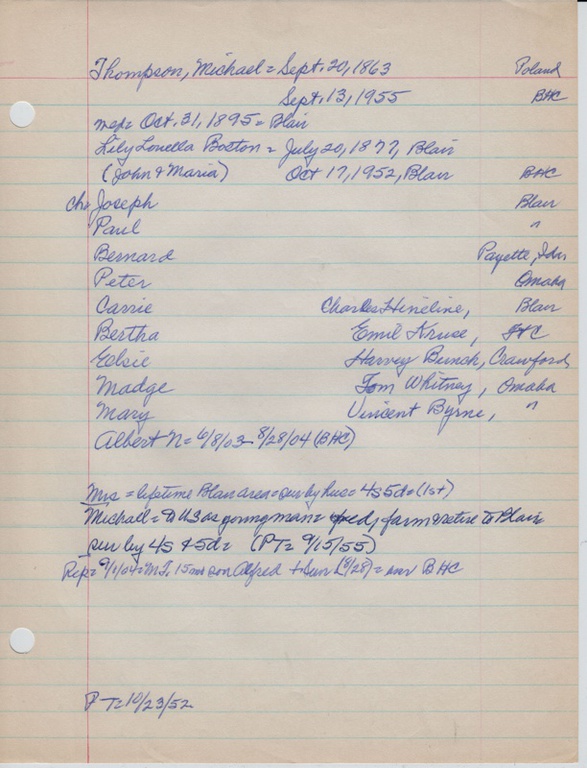 Thompson, Michael = Sept. 20, 1863 Poland
Sept. 13, 1955 BHC
med = Oct. 31, 1895 = Blair
Lily Louella Boston = July 20, 1877, Blair
(John & Maria) Oct 17, 1952, Blair BHC
ch = Joseph Blair
Paul "
Bernard Payette, Ida
Peter Omaha
Carrie Charles Hineline, Blair
Bertha Emil Kruse, FtC
Elsie Harvey Bunck, Crawford
Madge Tom Whitney, Omaha
Mary Vincent Byrne, "
Albert N = 6/8/03 - 8/28/04 (BHC)
Mrs = lifetime Blair area = sur by hus = 4S 5d = (1st)
Michael = to US as young man = farm retire to Blair
sur by 4S & 5d = (PT = 9/15/55)
Rep = 9/1/04 = Mr T, 15 mo son Alfred Sun (8/28) = BHC
PT = 10/23/52